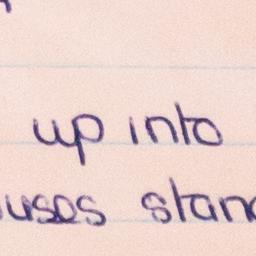 up into
uses stan